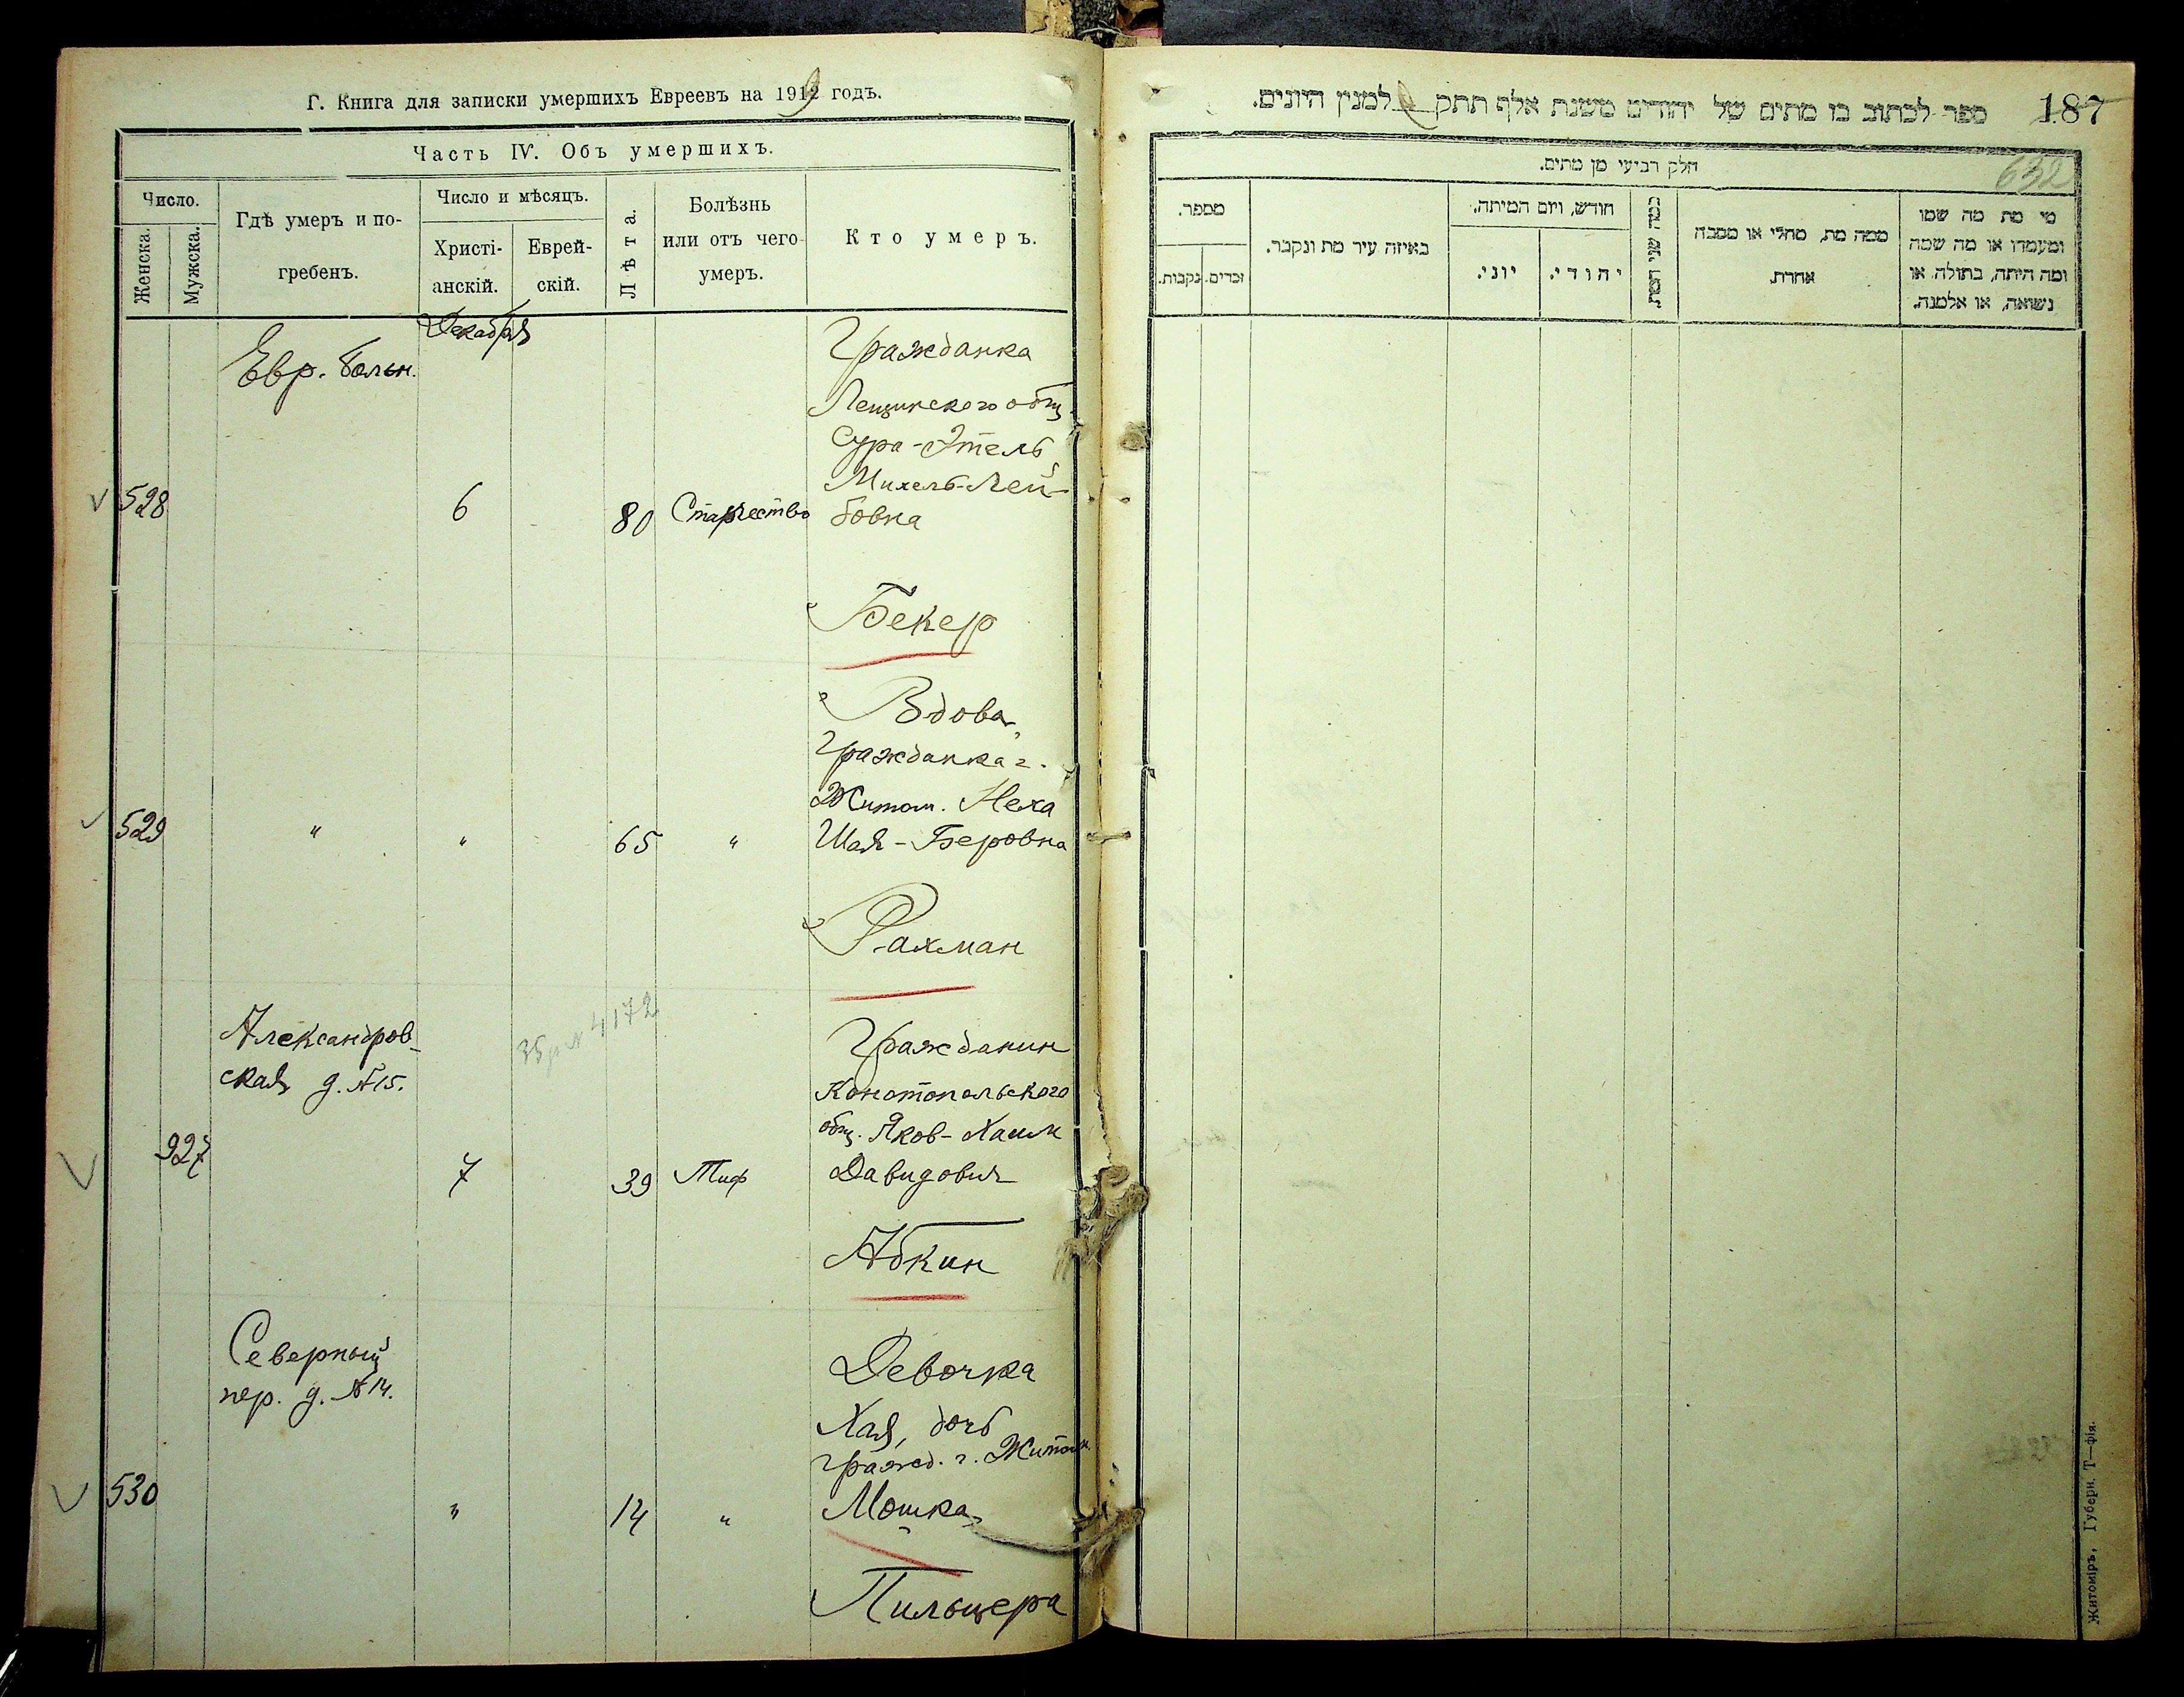 Г. Книга для записки умершихъ Евреевъ на 1919 годъ.
Часть IV. Объ умершихъ.
Число.
Женска.
Мужска.
Гдѣ умеръ и по-
гребенъ.
Число и мѣсяцъ.
Христі-
анскій.
Еврей-
скій.
Лѣта.
Болѣзнь
или отъ чего
умеръ.
Кто умеръ.
Декабря
Евр. больн.
Гражданка
Лещинского общ.
Сура-Этель
Михель-Лей-
528 6 80 Старчество бовна
Бекер
Вдова,
Гражданка г.
Житом. Неха
529 " " 65 " Шая-Беровна
Рахман
Александров-
ская д. №15.
4172
Гражданин
Конотопольского
общ. Яков-Хаим
927 7 39 Тиф Давидович
Абкин
Северный
пер. д. №14.
Девочка
Хая, дочь
гражд. г. Житом.
530 " 14 " Мошка
Пильцера
ספר לכתוב בו מתים של יהודים משנת אלף תתק למנין היונים.
187
632
חלק רביעי מן מתים.
מספר.
זכרים.
נקבות.
באיזה עיר מת ונקבר.
חודש, ויום המיתה.
יוני.
יהודי.
כמה שני המת.
ממה מת, מחלי או מסבה
אחרת.
מי מת מה שמו
ומעמדו או מה שמה
ומה היתה, בתולה, או
נשואה, או אלמנה.
Житоміръ, Губерн. Т—фія.